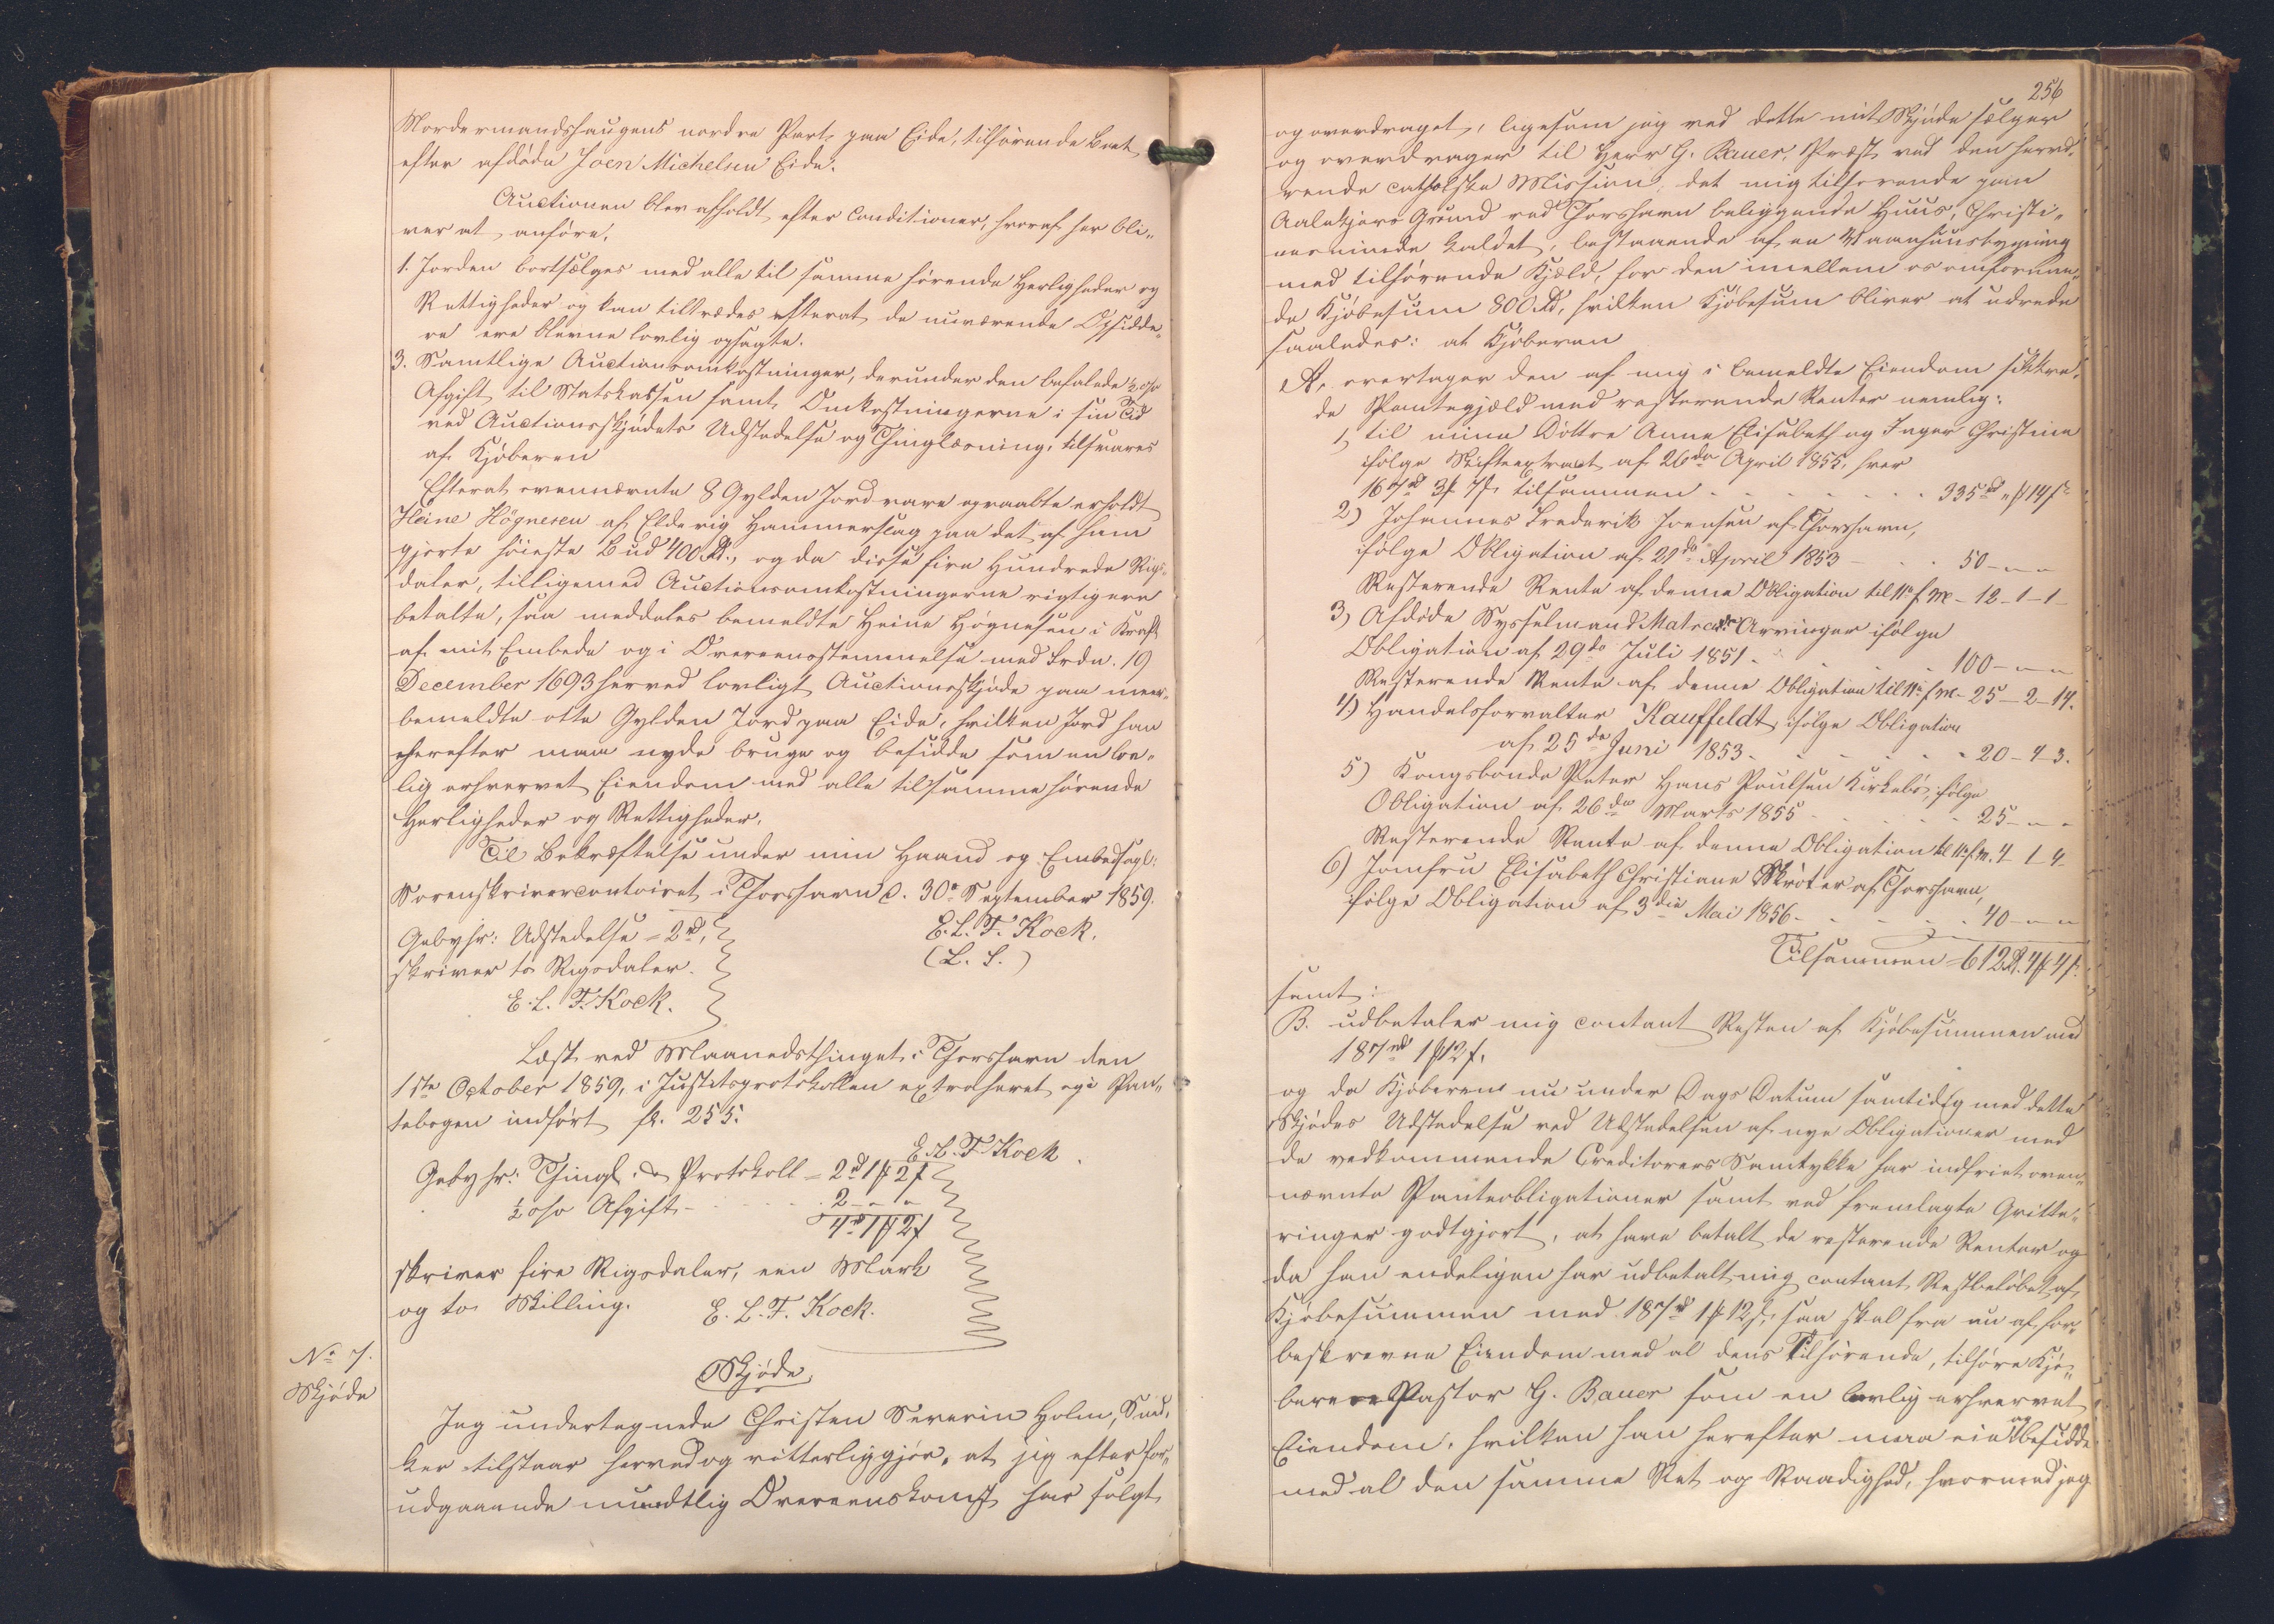 Nordermandshaugens nordre Part paa Eide, tilhørende Boet
efter afdøde Joen Michelsen Eide.
Auctionen blev afholdt efter Conditioner, hvoraf her bli-
ver at anføre,
1. Jorden bortsælges med alle til samme hørende Herligheder og
Rettigheder og kan tiltrædes efterat de nuværende Opsidde-
re ere blevne lovlig opsagte.
3. Samtlige Auctionsomkostninger, derunder den befalede ½ o/o
Afgift til Statskassen samt Omkostningerne i sin Tid
ved Auctionsskjødets Udstedelse og Thinglæsning, tilsvares
af Kjøberen
Efterat ovennævnte 8 Gylden Jord vare opraabte erholdt
Heine Högnesen af Eldevig Hammerslag paa det af ham
gjorte høieste Bud 400 Rd., og da disse fire Hundrede Rigs-
daler, tilligemed Auctionsomkostningerne rigtig ere
betalte, saa meddeles bemeldte Heine Högnesen i Kraft
af mit Embede og i Overeensstemmelse med Frdn. 19
December 1693 herved lovligt Auctionsskjøde paa meer-
bemeldte otte Gylden Jord paa Eide, hvilken Jord han
herefter maa nyde bruge og besidde som en lov-
lig erhvervet Eiendom med alle tilsamme hørende
Herligheder og Rettigheder.
Til Bekræftelse under min Haand og Embedssegl:
Sorenskrivercontoiret i Thorshavn d. 30e September 1859.
Gebyhr: Udstedelse = 2 rd, E. L. F. Kock.
skriver to Rigsdaler. (L. S.)
E. L. F. Kock.
Læst ved Maanedsthinget i Thorshavn den
1ste October 1859, i Justitsprotokollen extraheret og i Pan-
tebogen indført fol. 255.
E. L. F. Kock.
Gebyhr: Thingl. & Protokoll = 2 rd 1 ₥ 2 ß
½ o/o Afgift - - - - 2 - " - "
4 rd 1 ₥ 2 ß
skriver fire Rigsdaler, een Mark
og to Skilling. E. L. F. Kock.
No 7. Skjøde
Skjøde
Jeg undertegnede Christen Severin Holm, Sned-
ker tilstaar herved og vitterliggjør, at jeg efter for-
udgaaende mundtlig Overeenskomst har solgt
256
og overdraget, ligesom jeg ved dette mit Skjøde sælger
og overdrager til Herr G. Bauer, Præst ved den hervæ-
rende catholske Mission, det mig tilhørende paa
Aalekjers Grund ved Thorshavn beliggende Huus, Christi-
nesminde kaldet, bestaaende af en Vaanhuusbygning
med tilhørende Kjeld, for den imellem os omforene-
de Kjøbesum 800 Rd, hvilken Kjøbesum bliver at udrede
saaledes: at Kjøberen
A. overtager den af mig i bemeldte Eiendom sikkre-
de Pantegjæld med resterende Renter nemlig:
1, til mine Døttre Anne Elisabeth og Inger Christine
ifølge Skifteextract af 26de April 1855, hver
167 rd 3 ₥ 7 ß, tilsammen - - - - - 335 rd " ₥ 14 ß
2) Johannes Frederik Joensen af Thorshavn,
ifølge Obligation af 21de April 1853 - - - 50 - " - "
Resterende Rente af denne Obligation til 11te f. M. - 12 - 1 - 1 -
3) Afdøde Sysselmand Matras's Arvinger ifølge
Obligation af 29de Juli 1851 - - - - 100 - " - "
Resterende Rente af denne Obligation til 11te f. M. - 25 - 2 - 14.
4) Handelsforvalter Kauffeldt, ifølge Obligation
af 25de Juni 1853 - - - - - 20 - 4 - 3.
5) Kongsbonde Peter Hans Poulsen Kirkebø, ifølge
Obligation af 26de Marts 1855 - - - - - 25 - " - "
Resterende Rente af denne Obligation til 11te f. M. 4 - 1 - 4
6) Jomfru Elisabeth Christiane Skröter af Thorshavn,
ifølge Obligation af 3die Mai 1856 - - - - 40 - " - "
Tilsammen = 612 Rd. 4 ₥ 4 ß.
samt:
B. udbetaler mig contant Resten af Kjøbesummen med
187 rd 1 ₥ 12 ß.
og da Kjøberen nu under Dags Datum samtidig med dette
Skjødes Udstedelse ved Udstedelsen af nye Obligationer med
de vedkommende Creditorers Samtykke har indfriet oven-
nævnte Panteobligationer samt ved fremlagte Qvitte-
ringer godtgjort, at have betalt de resterende Renter og
da han endeligen har udbetalt mig contant Restbeløbet af
Kjøbesummen med 187 rd 1 ₥ 12 ß, saa skal fra nu af for-
beskrevne Eiendom med al dens Tilhørende, tilhøre Kjø-
beren Pastor G. Bauer som en lovlig erhvervet
Eiendom, hvilken han herefter maa eie og besidde
med al den samme Ret og Raadighed, hvormed jeg